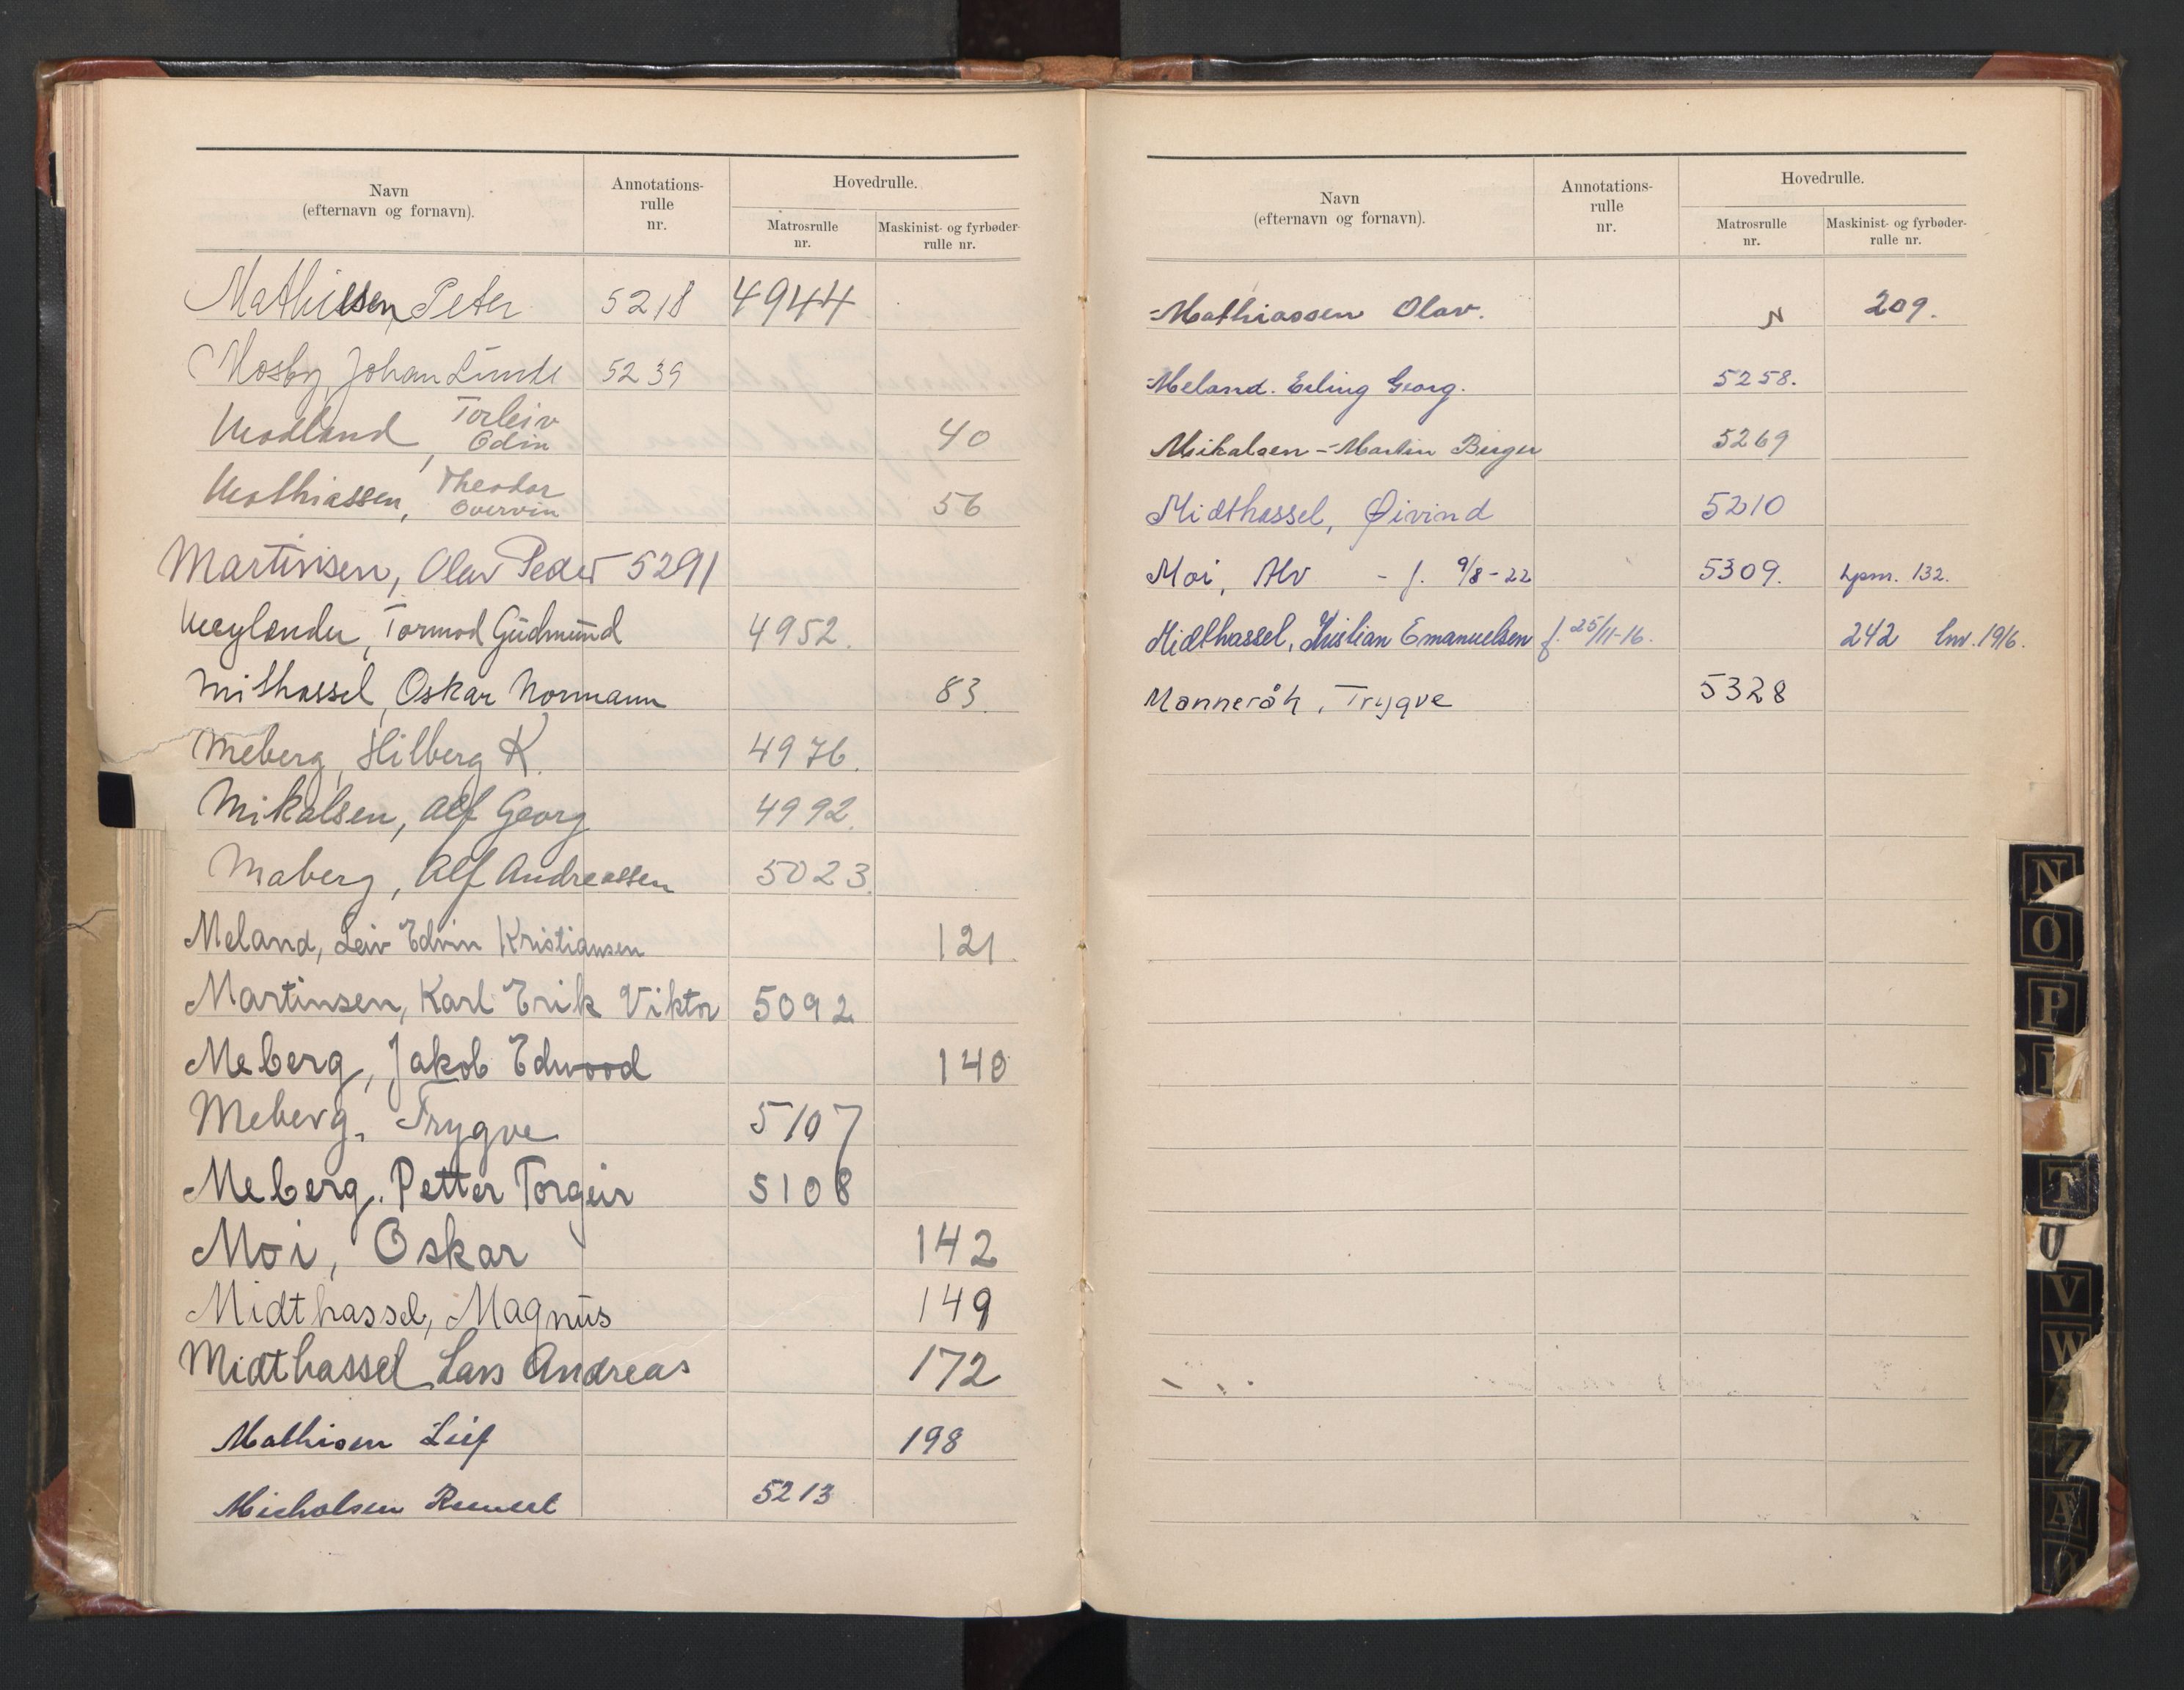 Navn
(efternavn og fornavn).
Annotations-
rulle
nr.
Hovedrulle.
Matrosrulle
nr.
Maskinist- og fyrbøder-
rulle nr.
Mathissen, Peter 5218 4944
Mosby, Johan Lunde 5239
Modland, Torleiv Odin 40
Mathiassen, Theodor Overvin 56
Martinsen, Olav Peder 5291
Meylænder, Tormod Gudmund 4952.
Mithassel, Oskar Normann 83.
Meberg, Hilberg K. 4976.
Mikalsen, Alf Georg 4992.
Maberg, Alf Andreassen 5023.
Meland, Leiv Edvin Kristiansen 121.
Martinsen, Karl Erik Viktor 5092
Meberg, Jakob Edwood 140
Meberg, Trygve 5107
Meberg, Petter Torgeir 5108
Moi, Oskar 142
Midthassel, Magnus 149
Midthassel, Lars Andreas 172
Mathisen Leif 198
Micholsen Reinert 5213
Navn
(efternavn og fornavn).
Annotations-
rulle
nr.
Hovedrulle.
Matrosrulle
nr.
Maskinist- og fyrbøder-
rulle nr.
Mathiassen Olav. N 209.
Meland. Erling Georg. 5258.
Mikalsen - Martin Birger 5269
Midthassel, Øivind 5210
Moi, Alv - f. 9/8-22 5309. 132.
Midthassel, Kristian Emanuelsen f. 25/11-16. 242 1916.
Manneråk, Trygve 5328
N
O
P
T
U
V
W
Z
Æ